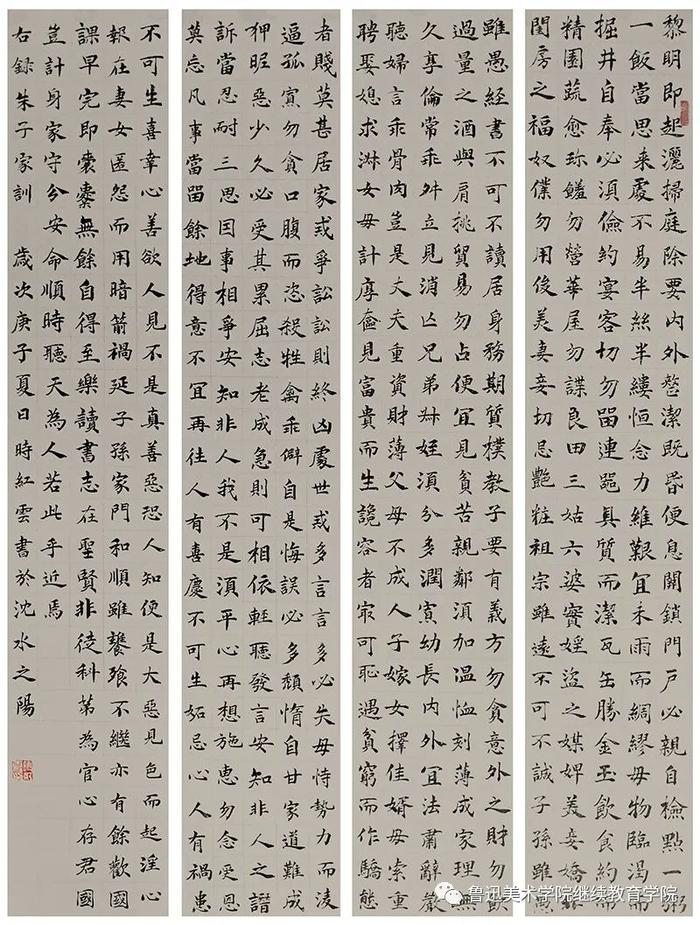 黎明即起灑掃庭除要内外整潔既昏便息關鎖門户必親自檢點一粥
一飯當思来處不易半絲半縷恒念力維艱宜未雨而綢繆毋物臨渴而
掘井自奉必須儉約宴客切勿留連器具質而潔瓦缶勝金玉飲食約而
精園蔬愈珍饈勿營華屋勿謀良田三姑六婆實婬盜之媒婢美妾嬌非
閨房之福奴僕勿用俊美妻妾切忌艷粧祖宗雖遠不可不誠子孫雖愚
雖愚經書不可不讀居身務期質樸教子要有義方勿貪意外之財勿飲
過量之酒與肩挑貿易勿占便宜見貧苦親鄰須加温恤刻薄成家理無
久享倫常乖舛立見消亡兄弟叔姪須分多潤寡幼長内外宜法肅辭嚴
聽婦言乖骨肉豈是丈夫重資財薄父母不成人子嫁女擇佳婿毋索重
聘娶媳求淑女毋計厚奩見富貴而生諂容者最可恥遇貧窮而作驕態
者賤莫甚居家戒爭訟訟則終凶處世戒多言言多必失毋恃勢力而凌
逼孤寡勿貪口腹而恣殺牲禽乖僻自是悔誤必多頹惰自甘家道難成
狎昵惡少久必受其累屈志老成急則可相依輕聽發言安知非人之譖
訴當忍耐三思因事相爭安知非人我不是須平心再想施惠勿念受恩
莫忘凡事當留餘地得意不宜再往人有喜慶不可生妬忌心人有禍患
不可生喜幸心善欲人見不是真善惡恐人知便是大惡見色而起淫心
報在妻女匿怨而用暗箭禍延子孫家門和順雖饔飧不繼亦有餘歡國
課早完即囊橐無餘自得至樂讀書志在聖賢非徒科第為官心存君國
豈計身家守分安命順時聽天為人若此乎近焉
右録朱子家訓 歲次庚子夏日時紅雲書於沈水之陽
鲁迅美术学院继续教育学院